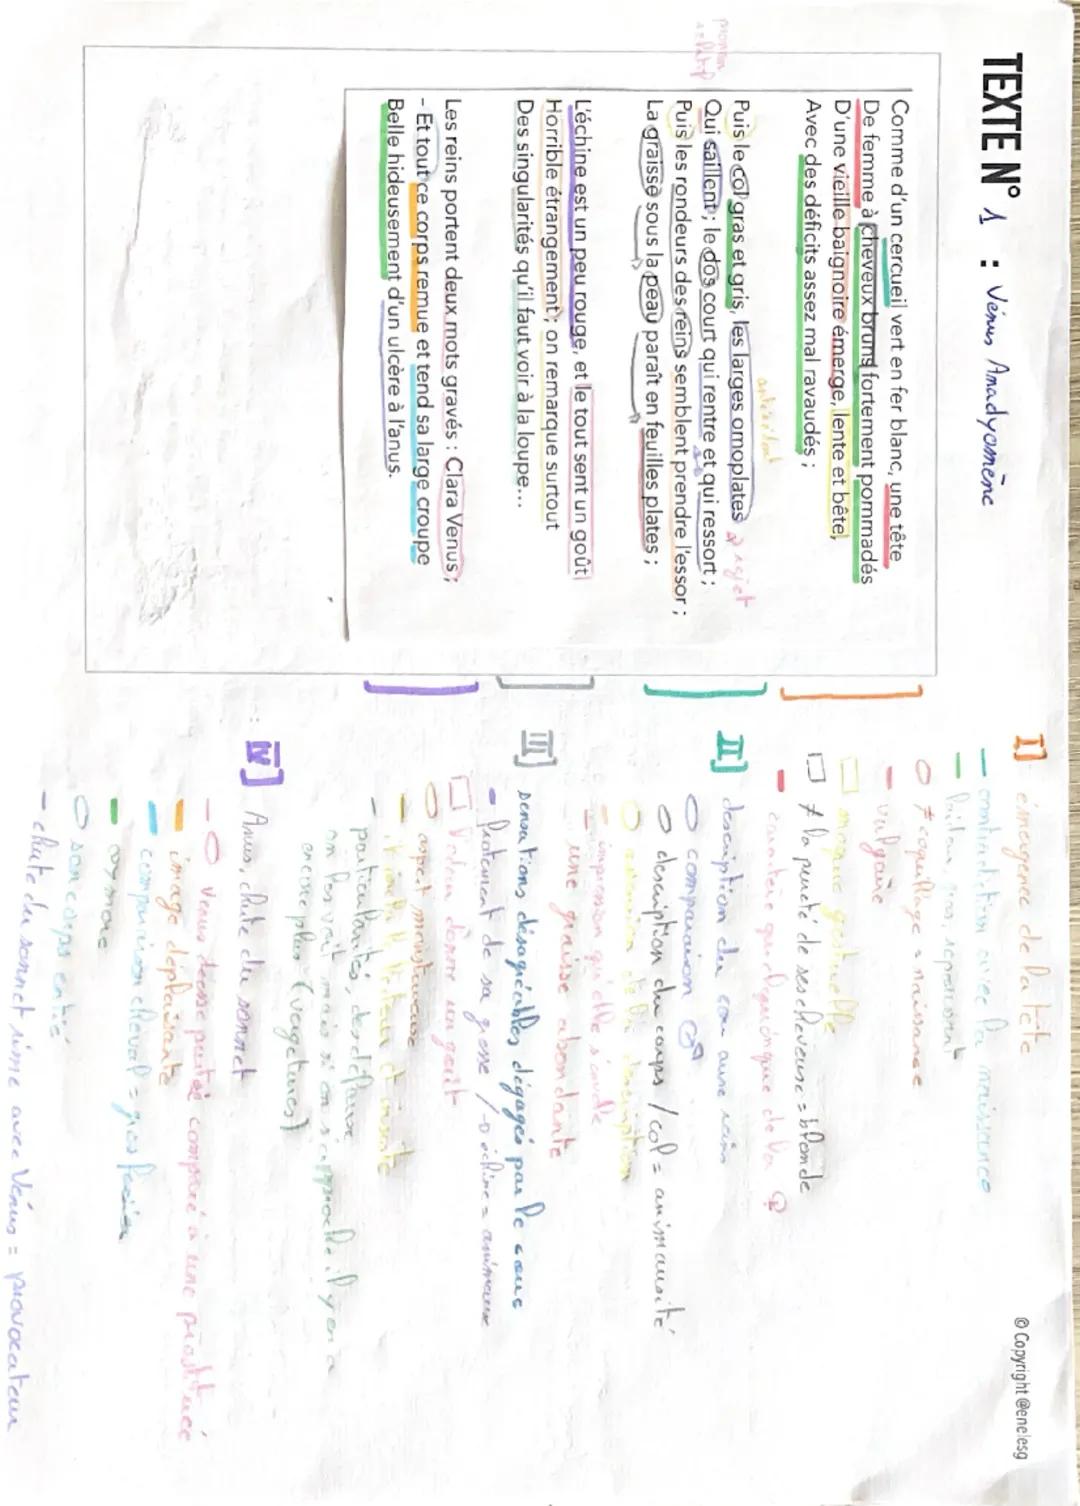 TEXTE N° 1 : Vénus Anadyomène
© Copyright @enelesg
Comme d'un cercueil vert en fer blanc, une tête
De femme à cheveux bruns fortement pommadés
D'une vieille baignoire émerge, lente et bête,
Avec des déficits assez mal ravaudés ;
antécédent
Puis le col gras et gris, les larges omoplates
rejet
pronom relatif
Qui saillent ; le dos court qui rentre et qui ressort ;
Puis les rondeurs des reins semblent prendre l'essor ;
La graisse sous la peau paraît en feuilles plates ;
L'échine est un peu rouge, et le tout sent un goût
Horrible étrangement ; on remarque surtout
Des singularités qu'il faut voir à la loupe...
Les reins portent deux mots gravés : Clara Venus ;
- Et tout ce corps remue et tend sa large croupe
Belle hideusement d'un ulcère à l'anus.
I] émergence de la tête
- contradiction avec la naissance
≠ coquillage = naissance
- vulgaire
≠ la pureté de ses cheveux = blonde
- caractère de la ♀
II] description du cou aux reins
comparaison
description du corps / col = animausité
- impression qu'elle s'
- une graisse abondante
III] sensations désagréables dégagés par le
- de sa / → échine = animaux
donne un goût
aspect monstrueuse
- particularités, des défaux
on les voit mais si on s'approche il y en a
encore plus (vagetures)
IV] Anus, chute du sonnet
- Vénus déesse comparé à une prostituée
image déplaisante
comparaison cheval = gros
oxymore
son corps entié
- chute du sonnet rime avec Vénus = provocateur